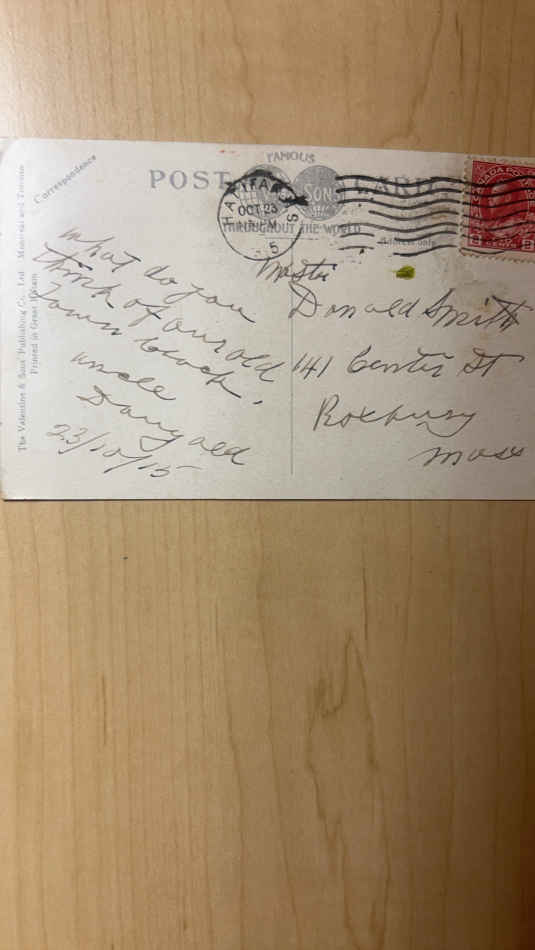 Correspondence
POST CARD
FAMOUS
SONS
THROUGHOUT THE WORLD
HALIFAX N.S
OCT 23
PM
5
Address only
CANADA POSTAGE
2 CENTS 2
The Valentine & Sons' Publishing Co., Ltd. Montreal and Toronto
Printed in Great Britain
what do you
think of our old
Town Clock.
uncle
Dougald
23/10/15
Master
Donald Smith
141 Center St
Roxbury
Mass